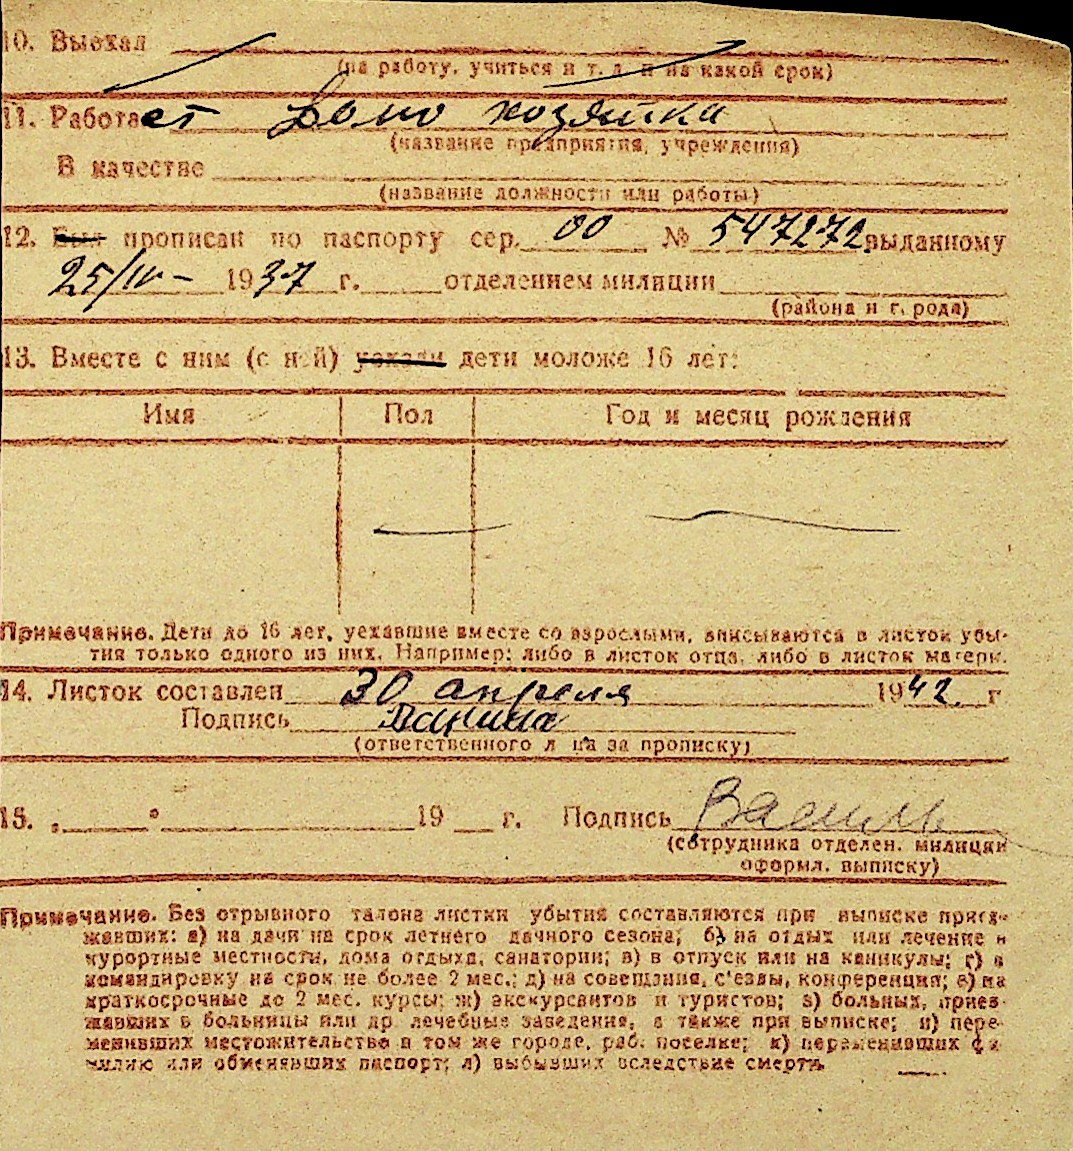 10. Выехал
(на работу, учиться и т. д. и на какой срок)
11. Работает Домо хозяйка
(название предприятия, учреждения)
В качестве
(название должности или работы)
12. Был прописан по паспорту сер. 00 № 547272 выданному
25/IV - 1937 г. отделением милиции
(района и города)
13. Вместе с ним (с ней) уехали дети моложе 16 лет:
Имя Пол Год и месяц рождения
Примечание. Дети до 16 лет, уехавшие вместе со взрослыми, вписываются в листок убы-
тия только одного из них. Например: либо в листок отца, либо в листок матери.
14. Листок составлен 30 апреля 1942 г
Подпись
(ответственного лица за прописку)
15. „ " 19 г. Подпись Василь
(сотрудника отделен. милиции
оформл. выписку)
Примечание. Без отрывного талона листки убытия составляются при выписке приез-
жавших: а) на дачи на срок летнего дачного сезона; б) на отдых или лечение в
курортные местности, дома отдыха, санатории; в) в отпуск или на каникулы; г) в
командировку на срок не более 2 мес.; д) на совещания, с'езды, конференции; е) на
краткосрочные до 2 мес. курсы; ж) экскурсантов и туристов; з) больных, приез-
жавших в больницы или др лечебные заведения, а также при выписке; и) пере-
менивших местожительство в том же городе, раб. поселке; к) переменивших фа-
милию или обменявших паспорт; л) выбывших вследствие смерти.